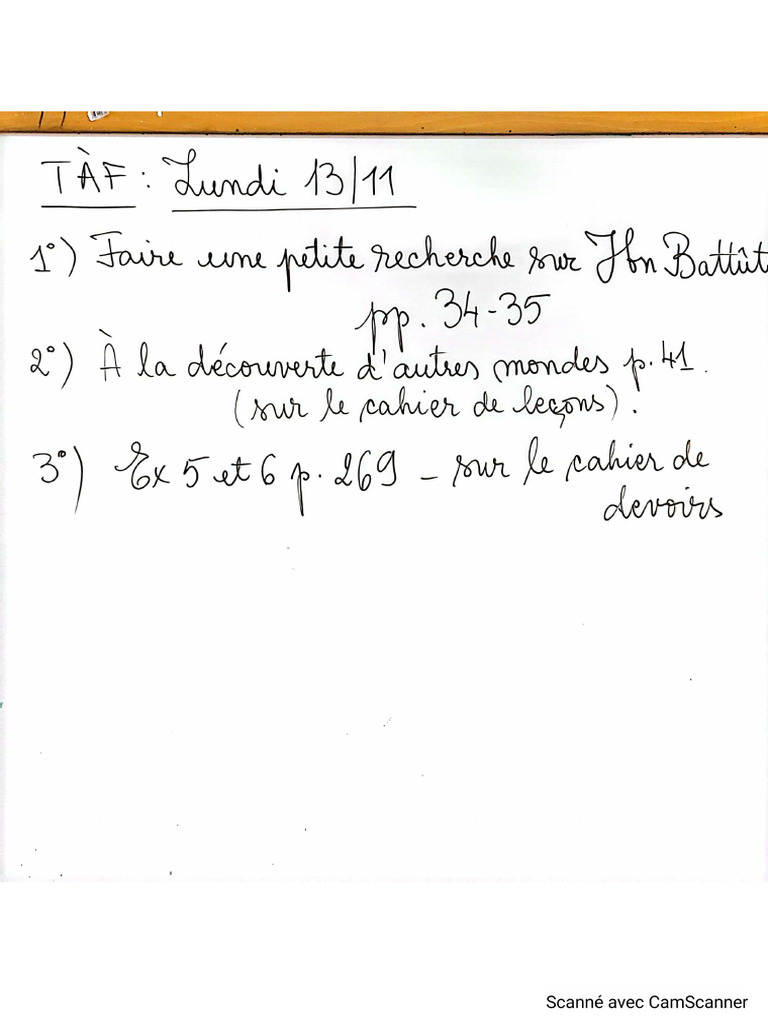 TÀF : Lundi 13/11
1°) Faire une petite recherche sur Ibn Battût
pp. 34-35
2°) À la découverte d'autres mondes p. 41.
(sur le cahier de leçons).
3°) Ex 5 et 6 p. 269 - sur le cahier de
devoirs
Scanné avec CamScanner